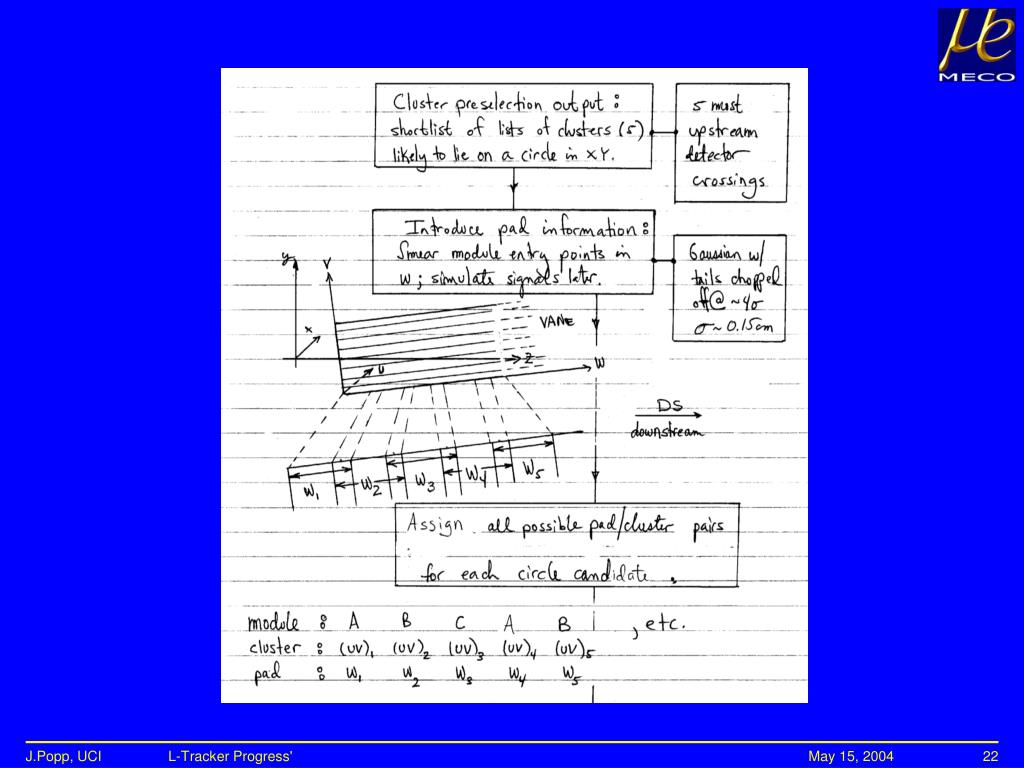 μe
MECO
Cluster preselection output :
shortlist of lists of clusters (5)
likely to lie on a circle in XY.
5 most
upstream
detector
crossings
Introduce pad information :
Smear module entry points in
w ; simulate signals later.
Gaussian w/
tails chopped
off @ ~4σ
σ ~ 0.15cm
y
V
x
VANE
Z
U
W
DS
downstream
W1 W2 W3 W4 W5
Assign all possible pad/cluster pairs
for each circle candidate.
module : A B C A B , etc.
cluster : (uv)1 (uv)2 (uv)3 (uv)4 (uv)5
pad : W1 W2 W3 W4 W5
J.Popp, UCI L-Tracker Progress' May 15, 2004 22